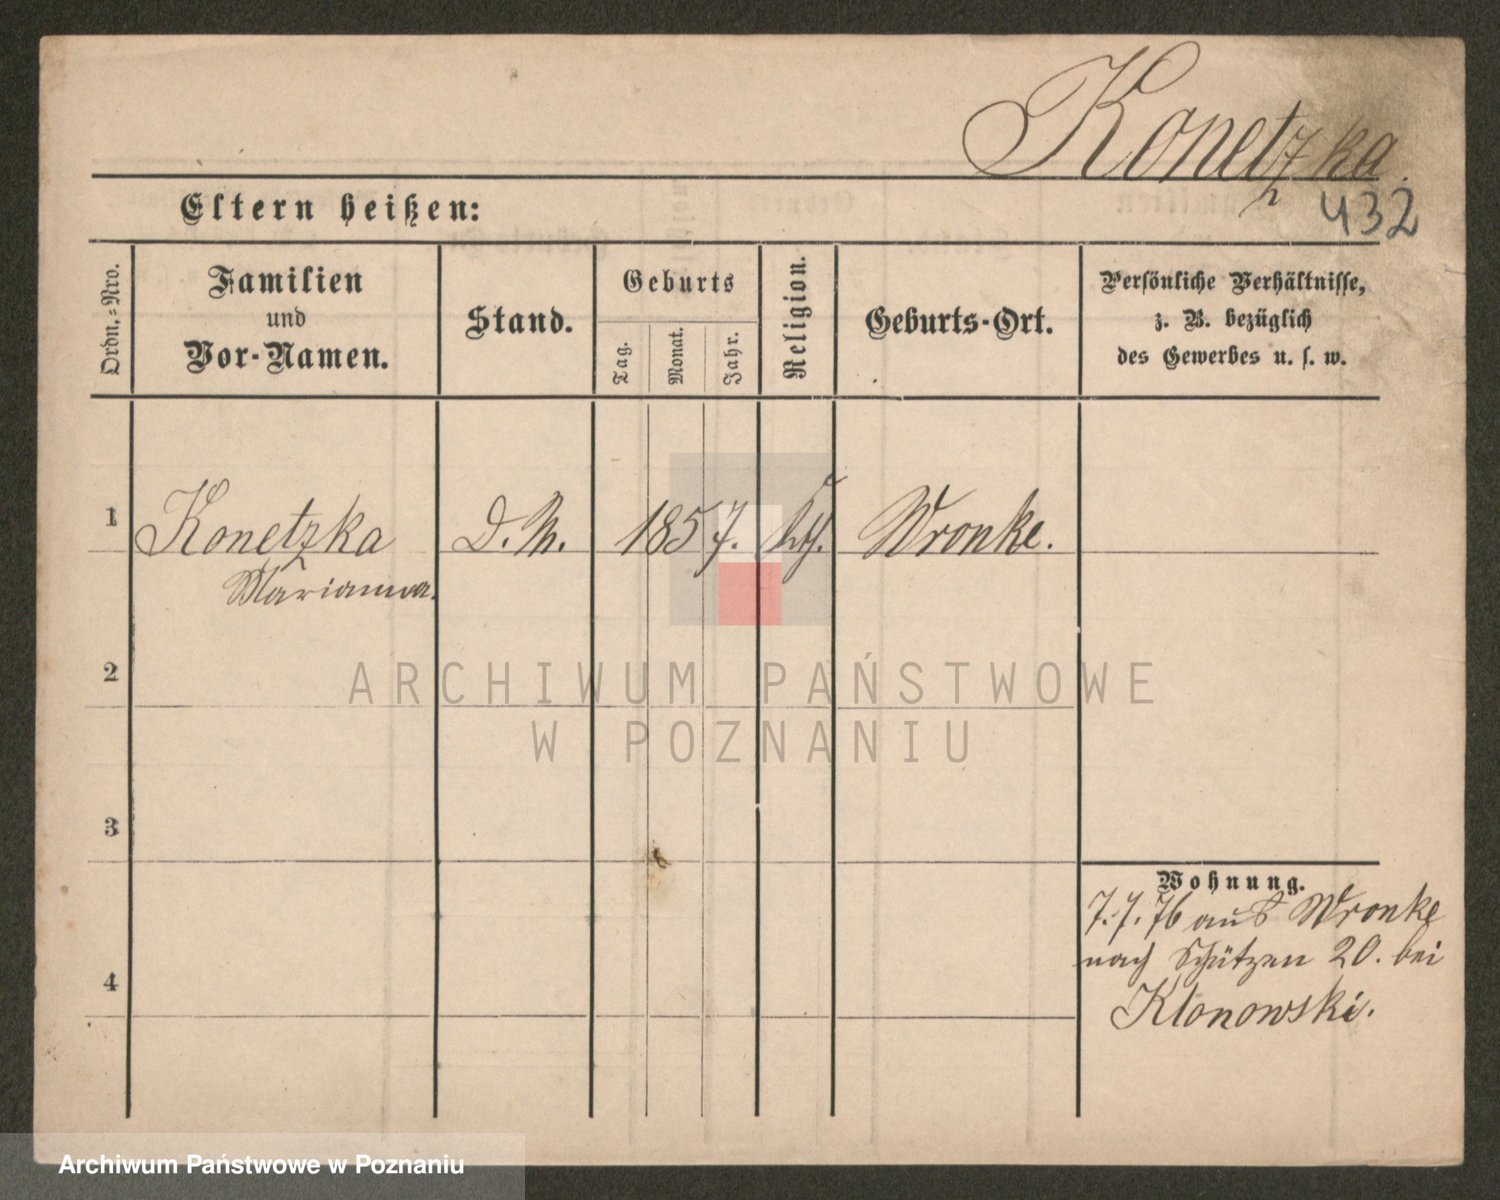 Konetzka.
432
Eltern heißen:
Ordn.=Nro.
Familien
und
Vor-Namen.
Stand.
Geburts
Tag.
Monat.
Jahr.
Religion.
Geburts-Ort.
Persönliche Verhältnisse,
z. B. bezüglich
des Gewerbes u. s. w.
1
Konetzka
Marianna.
D. M.
1857.
Wronke.
2
ARCHIWUM PAŃSTWOWE
W POZNANIU
3
Wohnung.
7. 7. 76 aus Wronke
nach Schützen 20. bei
4
Klonowski.
Archiwum Państwowe w Poznaniu